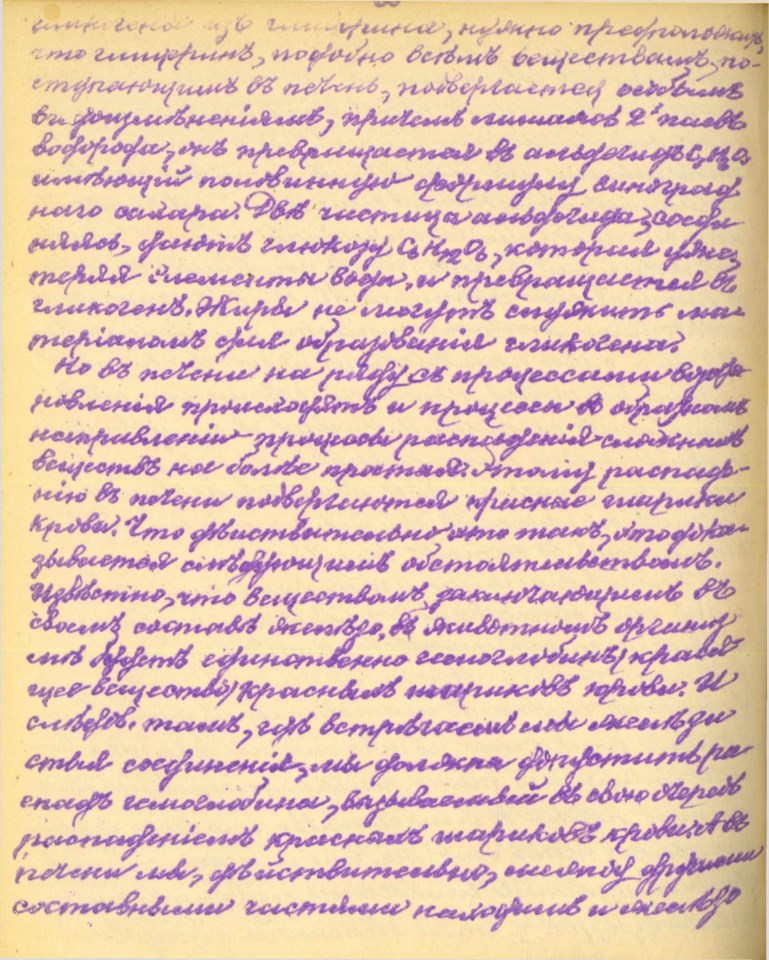 гликогена изъ глицерина, нужно предположить,
что глицеринъ, подобно всѣмъ веществамъ, по-
ступающимъ въ печень, подвергается особымъ
видоизмѣненіямъ, причемъ лишаясь 2х паевъ
водорода, онъ превращается въ альдегидъ C3H6O3
имѣющій половинную формулу виноград
наго сахара. Двѣ частицы альдегида, соеди
няясь, даютъ глюкозу C6H12O6, которая уже,
теряя элементы воды, и превращается въ
гликогенъ. Жиры не могутъ служить ма-
теріаломъ для образованія гликогена.
Но въ печени на ряду съ процессами возста
новленія происходятъ и процессы въ обратномъ
направленіи процессы распаденія сложныхъ
веществъ на болѣе простыя. Этому распаде-
нію въ печени подвергаются красные шарики
крови. Что дѣйствительно это такъ, это дока
зывается слѣдующимъ обстоятельствомъ.
Извѣстно, что веществомъ, заключающимъ въ
своемъ составѣ желѣзо, въ животномъ организ
мѣ будетъ единственно гемоглобинъ (крася
щее вещество) красныхъ шариковъ крови. И
слѣдов. тамъ, гдѣ встрѣчаемъ мы желѣзи
стыя соединенія, мы должны допустить ра
спадъ гемоглобина, вызываемый въ свою очередь
распаденіемъ красныхъ шариковъ крови. А въ
печени мы, дѣйствительно, между другими
составными частями находимъ и желѣзо